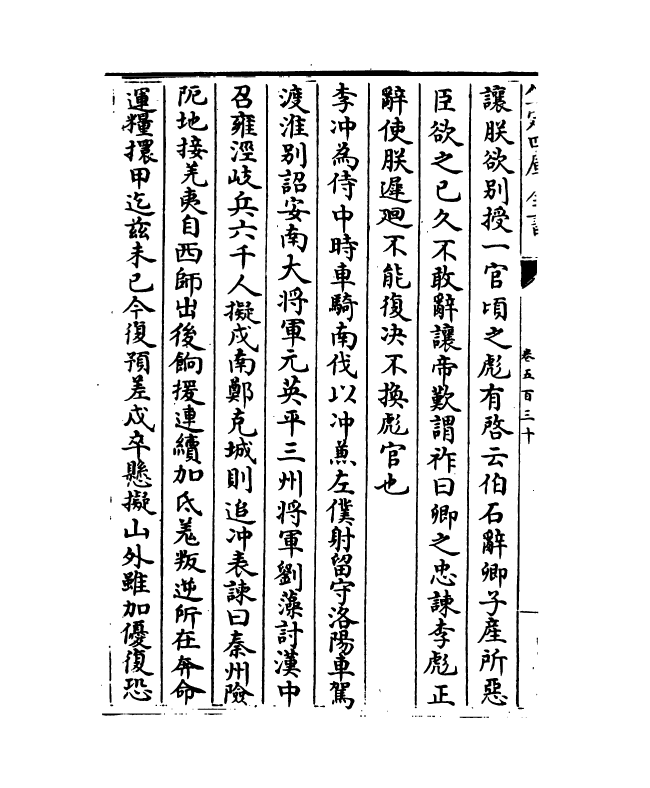 欽定四庫全書
卷五百三十
讓朕欲别授一官頃之彪有啓云伯石辭卿子産所惡
臣欲之已久不敢辭讓帝歎謂祚曰卿之忠諫李彪正
辭使朕遲迴不能復决不換彪官也
李冲為侍中時車騎南伐以冲兼左僕射留守洛陽車駕
渡淮别詔安南大將軍元英平三州將軍劉藻討漢中
召雍涇岐兵六千人擬戍南鄭克城則追冲表諫曰秦州險
阨地接羌夷自西師出後餉援連續加氐羌叛逆所在奔命
運糧擐甲迄兹未已今復預差戍卒懸擬山外雖加優復恐